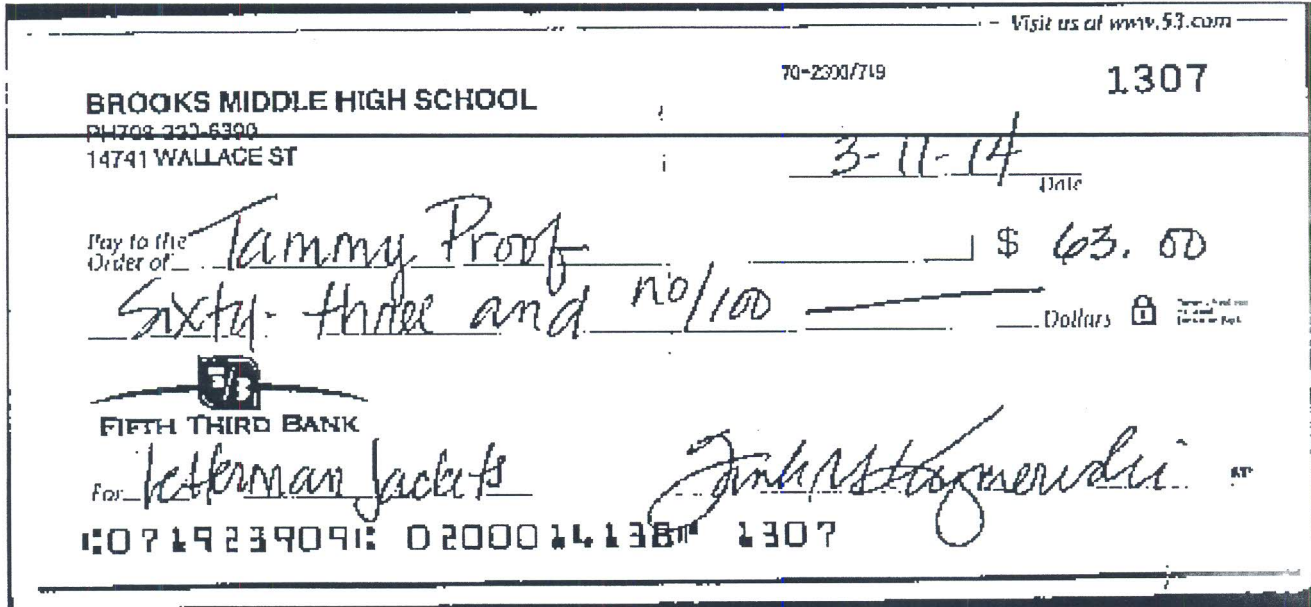 Visit us at www.53.com
70-2390/719
1307
BROOKS MIDDLE HIGH SCHOOL
14741 WALLACE ST
3-11-14
Date
Pay to the
Order of Tammy Proof $ 63.00
Sixty-three and no/100 Dollars
5/3
FIFTH THIRD BANK
For letterman jackets
⑆071923909⑆ 0200014138⑈ 1307